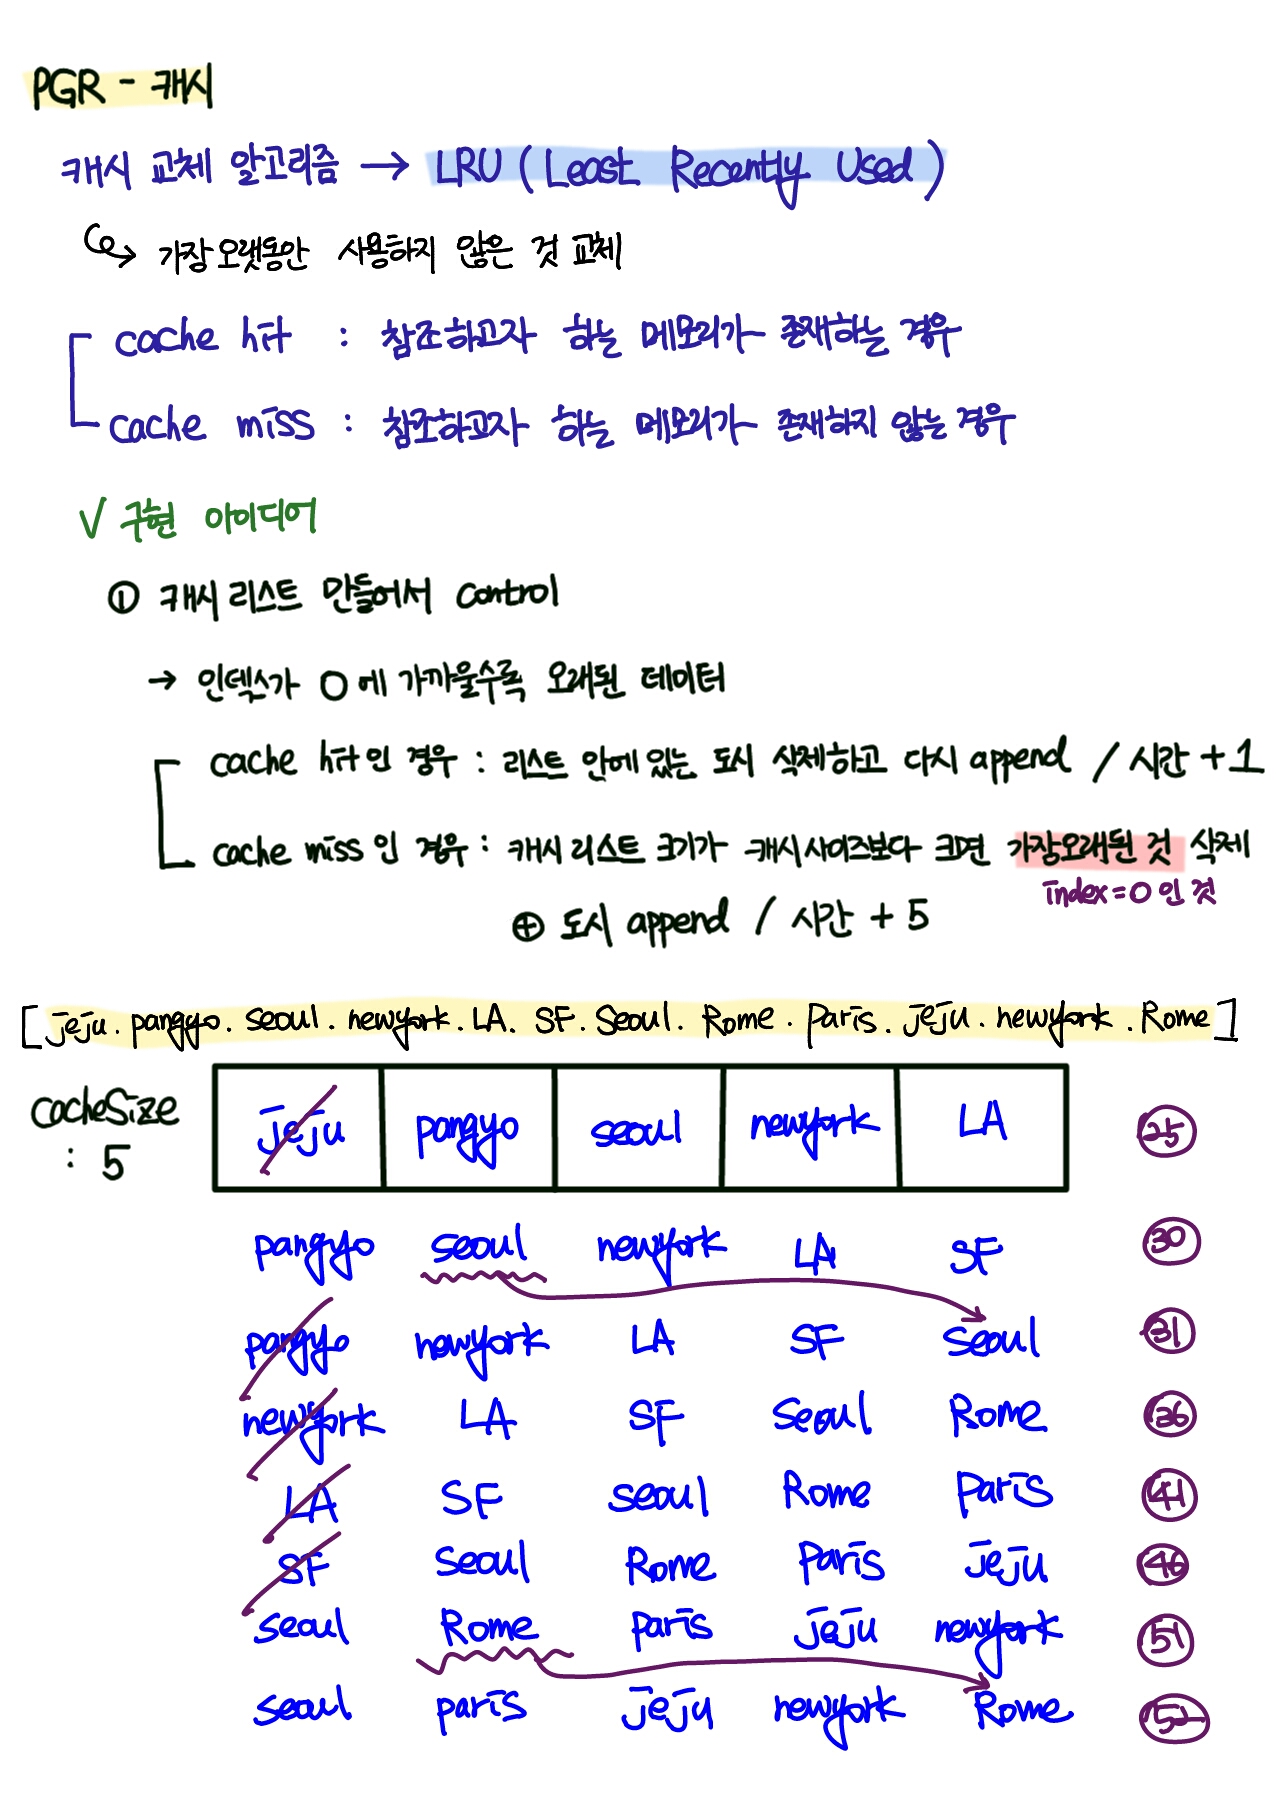 PGR - 캐시
캐시 교체 알고리즘 → LRU (Least Recently Used)
↪ 가장 오랫동안 사용하지 않은 것 교체
cache hit : 참조하고자 하는 메모리가 존재하는 경우
cache miss : 참조하고자 하는 메모리가 존재하지 않는 경우
√ 구현 아이디어
① 캐시 리스트 만들어서 control
→ 인덱스가 0에 가까울수록 오래된 데이터
cache hit인 경우 : 리스트 안에 있는 도시 삭제하고 다시 append / 시간 +1
cache miss인 경우 : 캐시 리스트 크기가 캐시 사이즈보다 크면 가장 오래된 것 삭제
index=0인 것
⊕ 도시 append / 시간 + 5
[jeju. pangyo. seoul. newyork. LA. SF. Seoul. Rome. Paris. jeju. newyork. Rome]
cacheSize : 5
jeju pangyo seoul newyork LA 25
pangyo seoul newyork LA SF 30
pangyo newyork LA SF Seoul 31
newyork LA SF Seoul Rome 36
LA SF seoul Rome Paris 41
SF Seoul Rome Paris jeju 46
seoul Rome Paris jeju newyork 51
seoul paris jeju newyork Rome 52